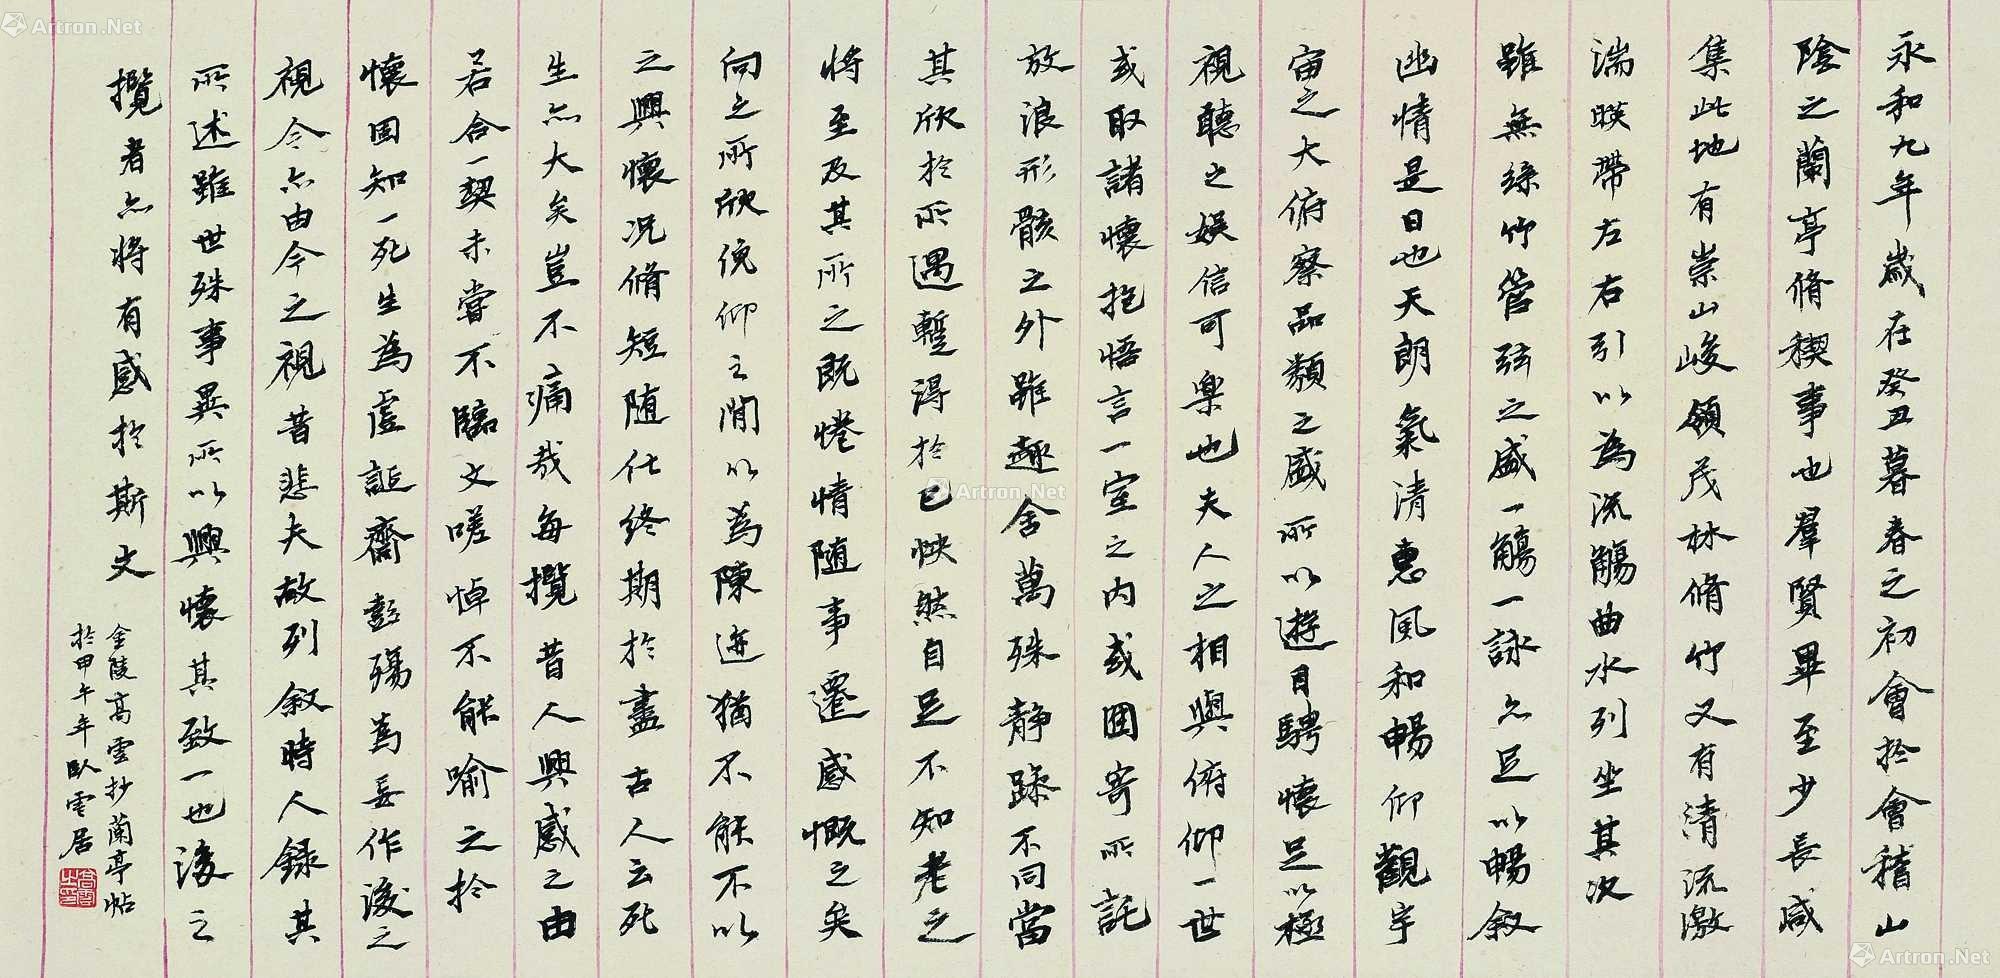 永和九年歲在癸丑暮春之初會於會稽山
陰之蘭亭脩稧事也羣賢畢至少長咸
集此地有崇山峻領茂林脩竹又有清流激
湍暎帶左右引以為流觴曲水列坐其次
雖無絲竹管弦之盛一觴一詠亦足以暢叙
幽情是日也天朗氣清惠風和暢仰觀宇
宙之大俯察品類之盛所以遊目騁懷足以極
視聽之娛信可樂也夫人之相與俯仰一世
或取諸懷抱悟言一室之内或囙寄所託
放浪形骸之外雖趣舍萬殊静躁不同當
其欣於所遇蹔得於己怏然自足不知老之
將至及其所之既惓情随事遷感慨之矣
向之所欣俛仰之間以為陳迹猶不能不以
之興懷况脩短随化終期於盡古人云死
生亦大矣豈不痛哉每攬昔人興感之由
若合一契未嘗不臨文嗟悼不能喻之於
懷固知一死生為虛誕齊彭殤為妄作後之
視今亦由今之視昔悲夫故列叙時人録其
所述雖世殊事異所以興懷其致一也後之
攬者亦將有感於斯文
金陵高雲抄蘭亭帖
於甲午年臥雲居
高雲之印
Artron.Net
Artron.Net
Artron.Net
Artron.Net
Artron.Net